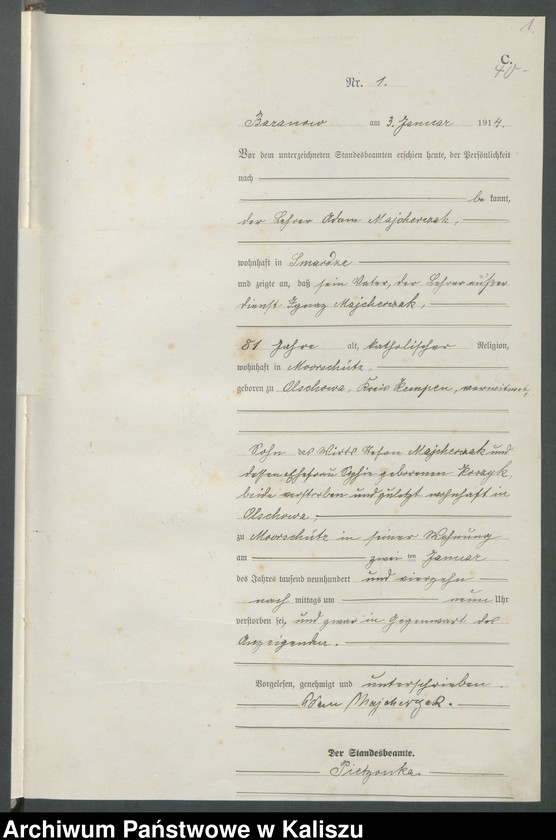 1.
C.
40-
Nr. 1.
Baranow am 3. Januar 1914.
Vor dem unterzeichneten Standesbeamten erschien heute, der Persönlichkeit
nach
be kannt,
der Lehrer Adam Majcherczak,
wohnhaft in Smardze
und zeigte an, daß sein Vater, der Lehrer außer
dienst Ignaz Majcherczak,
81 Jahre alt, katholischer Religion,
wohnhaft in Moorschütz
geboren zu Olschowa, Kreis Kempen, verwitwet,
Sohn des Wirts Stefan Majcherczak und
dessen Ehefrau Sophie geborenen Korzyk,
beide verstorben und zuletzt wohnhaft in
Olschowa,
zu Moorschütz in seiner Wohnung
am zwei ten Januar
des Jahres tausend neunhundert und vierzehn
nach mittags um neun Uhr
verstorben sei, und zwar in Gegenwart des
Anzeigenden.
Vorgelesen, genehmigt und unterschrieben.
Adam Majcherczak.
Der Standesbeamte.
Pietzonka.
Archiwum Państwowe w Kaliszu